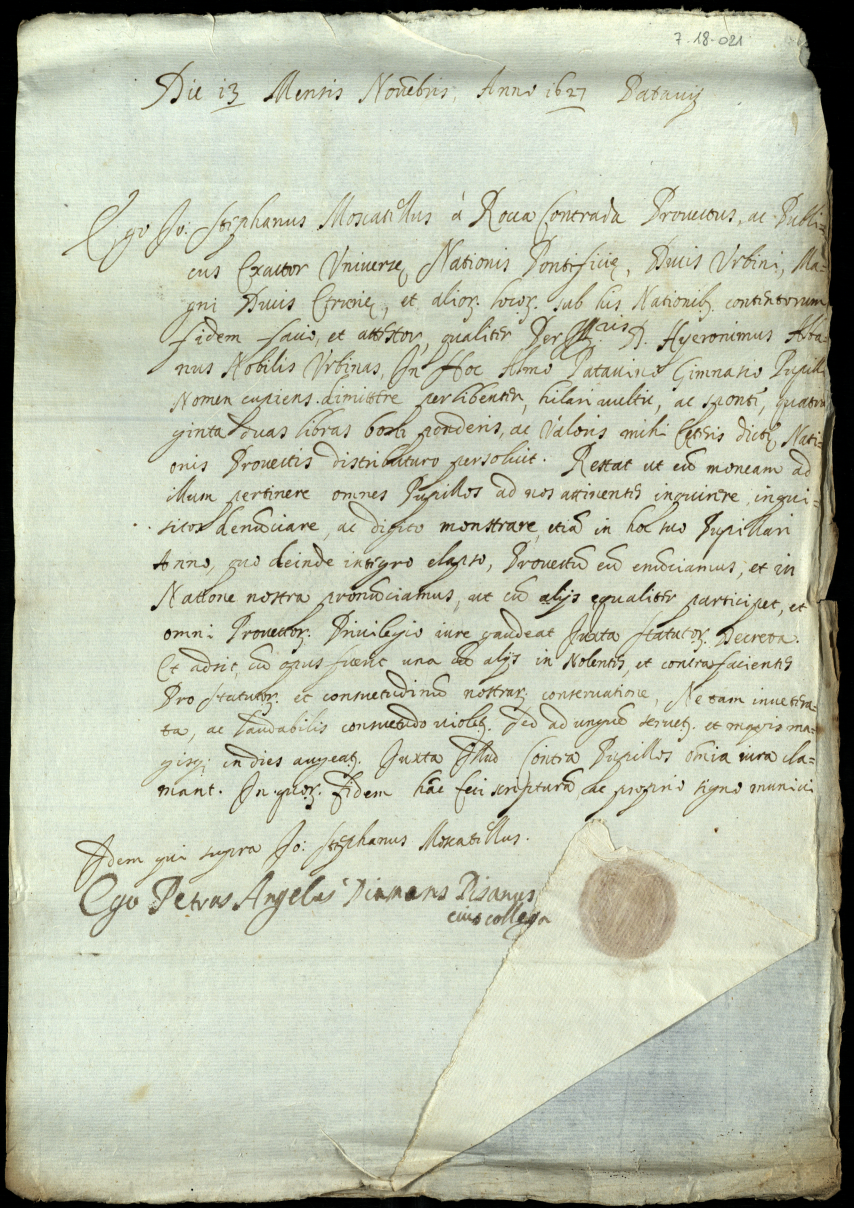 7-18-021
Die 13 Mensis Novẽbris, Anno 1627 Patavij
Ego Jo: Stephanus Moscatellus à Rocca Contrada Provectus, ac Publi=
cus Exactor Universę Nationis Pontificię, Ducis Urbini, Ma=
gni Ducis Etrurię, et alioꝝ locoꝝ sub his Nationibꝫ contentorum
fidem facio, et attestor, qualiter D. Hyeronimus Alba=
nus Nobilis Urbinas, In Hoc Almo Patavino Gimnasio Pupilli
Nomen cupiens dimittere perlibenter, hilari vultu, ac spontè, quatra
ginta duas libras boni ponderis, ac valoris mihi Cęteris dictę Nati=
onis Provectis distributuro persolvit. Restat ut eũ moneam ad
illum pertinere omnes Pupillos ad nos attinentes inquirere, inqui=
sitos denũciare, ac digito monstrare, etiã in hoc suo Pupillari
Anno, quo deinde integro elapso, Provectũ eũ enũciamus, et in
Natione nostra pronũciamus, ut cũ alijs equaliter participet, et
omni Provectoꝝ Privilegio iure gaudeat Juxta statutoꝝ Decreta.
Et adsit, cũ opus fuerit una cũ alijs in Nolentes, et contra facientes
Pro statutoꝝ et consuetudinũ nostraꝝ conservatione, Ne tam invetera=
ta, ac laudabilis consuetudo violetꝫ. Sed ad unguẽ servetꝫ et magis ma=
gisqꝫ in dies augeatꝫ. Juxta Illud Contra Pupillos omnia iura cla=
mant. In quoꝝ fidem hãc feci scripturã, ac proprio signo munivi
Idem qui supra Jo: Stephanus Moscatellus.
Ego Petrus Angelus Pisanus
eius collega